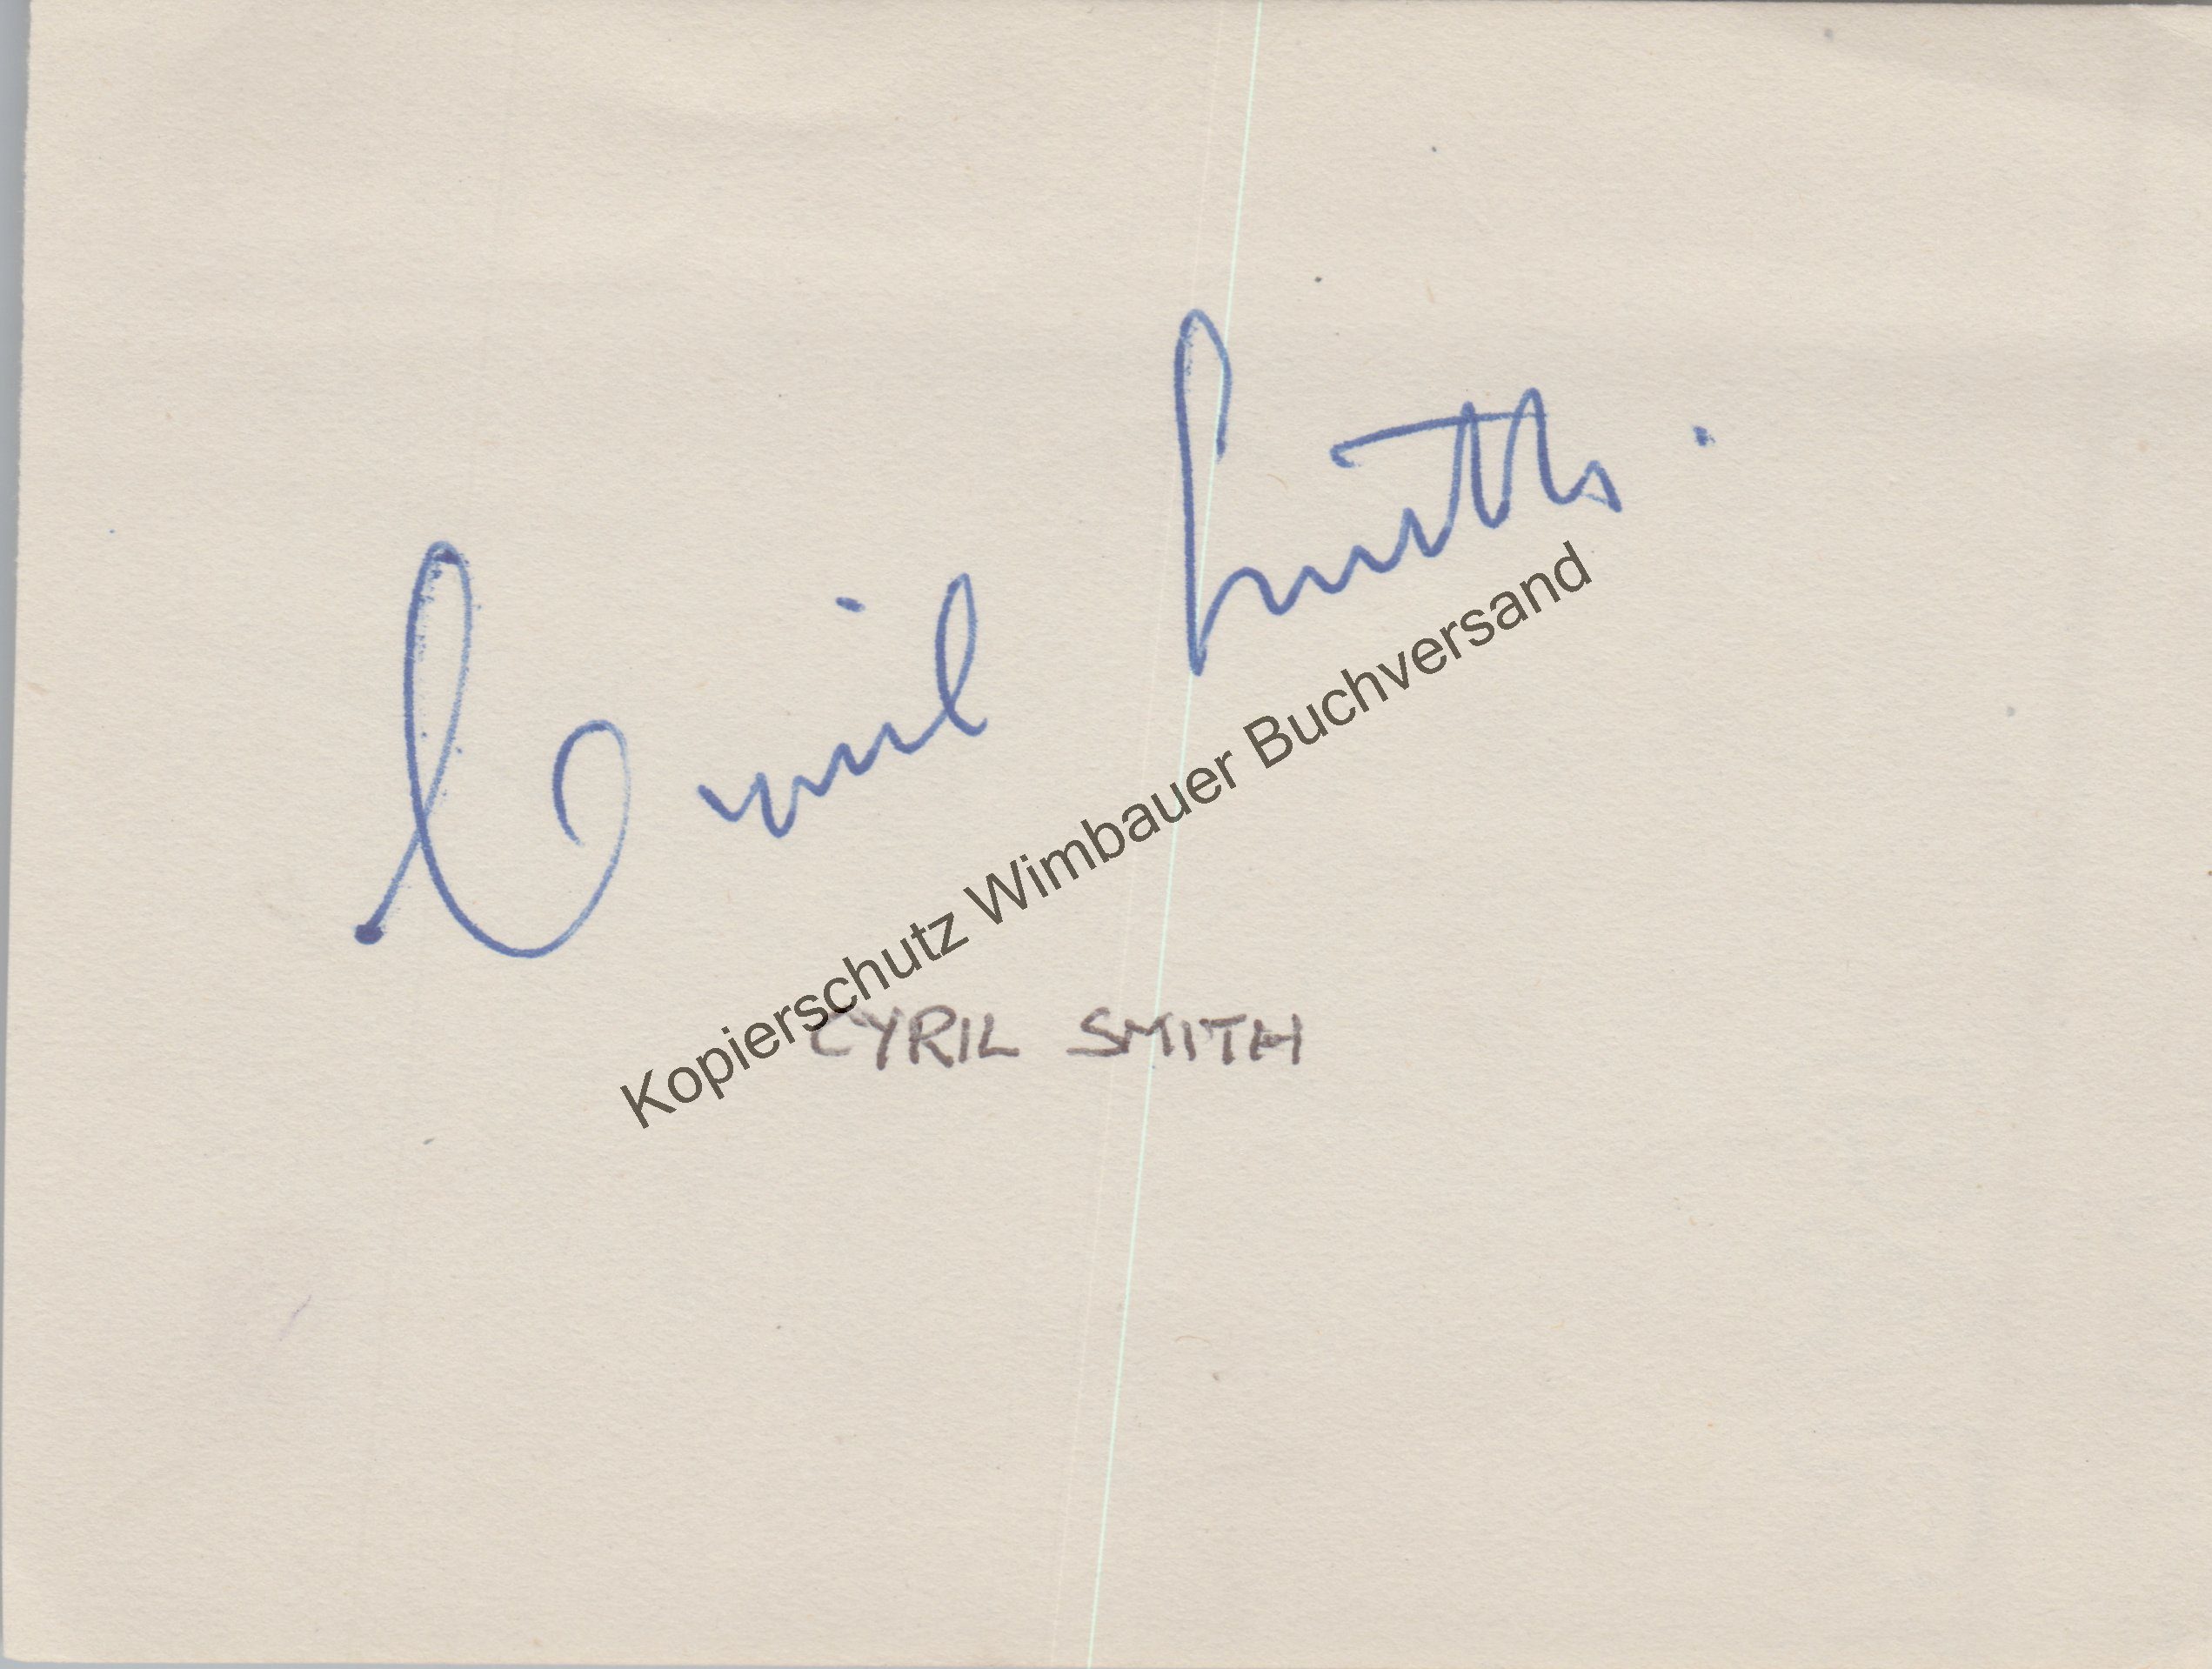 Cyril Smith.
Kopierschutz Wimbauer Buchversand
CYRIL SMITH